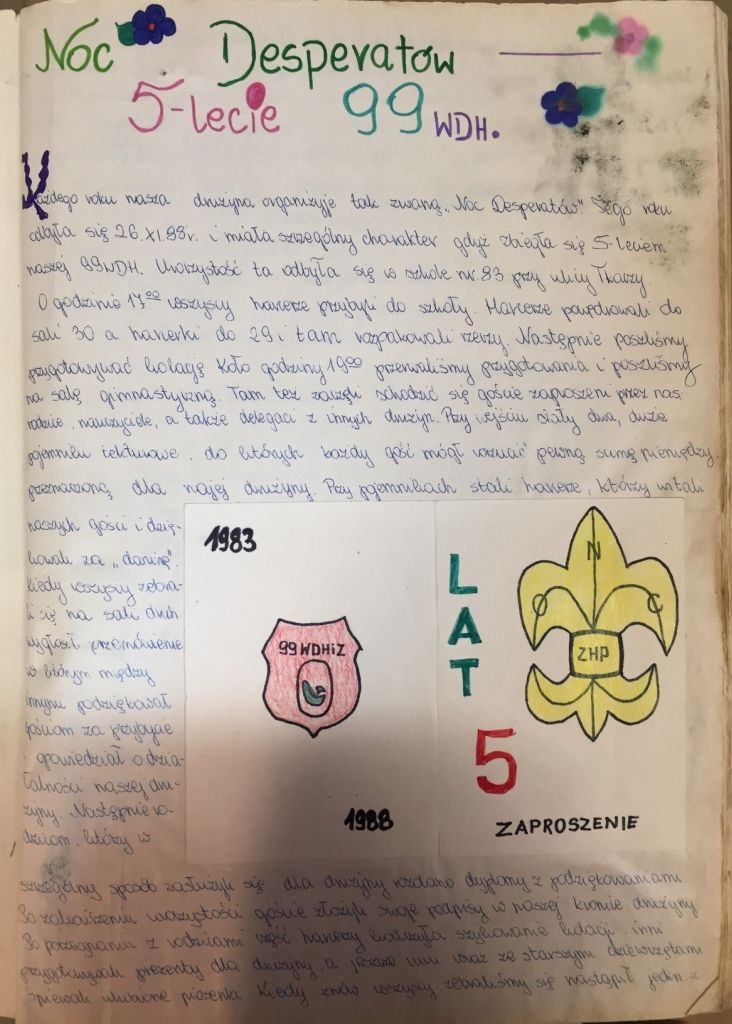 Noc Desperatów
5-lecie 99 WDH.
Każdego roku nasza drużyna organizuje tak zwaną „Noc Desperatów". Tego roku
odbyła się 26.XI.88r. i miała szczególny charakter gdyż zbiegła się 5-leciem
naszej 99WDH. Uroczystość ta odbyła się w szkole nr. 83 przy ulicy Tkaczy.
O godzinie 17⁰⁰ wszyscy harcerze przybyli do szkoły. Harcerze powędrowali do
sali 30 a harcerki do 29 i tam rozpakowali rzeczy. Następnie poszliśmy
przygotowywać kolację. Koło godziny 19⁰⁰ przerwaliśmy przygotowania i poszliśmy
na salę gimnastyczną. Tam też zaczęli schodzić się goście zaproszeni przez nas:
rodzice, nauczyciele, a także delegaci z innych drużyn. Przy wejściu stały dwa, duże
pojemniki tekturowe, do których każdy gość mógł wrzucić pewną sumę pieniędzy,
przeznaczoną dla naszej drużyny. Przy pojemnikach stali harcerze, którzy witali
naszych gości i dzię-
kowali za „daninę".
Kiedy wszyscy zebra-
li się na sali druh
wygłosił przemówienie
w którym między
innymi podziękował
gościom za przybycie
i opowiedział o dzia-
łalności naszej dru-
żyny. Następnie ro-
dzicom, którzy w
1983
99 WDHiZ
1988
LAT
5
O N C
ZHP
ZAPROSZENIE
szczególny sposób zasłużyli się dla drużyny rozdano dyplomy z podziękowaniami
Po zakończeniu uroczystości goście złożyli swoje podpisy w naszej kronice drużyny
Po pożegnaniu z rodzicami część harcerzy kończyła szykowanie kolacji, inni
przygotowywali prezenty dla drużyny, a jeszcze inni wraz ze starszymi dziewczętami
śpiewali ulubione piosenki. Kiedy znów wszyscy zebraliśmy się nastąpił jeden z